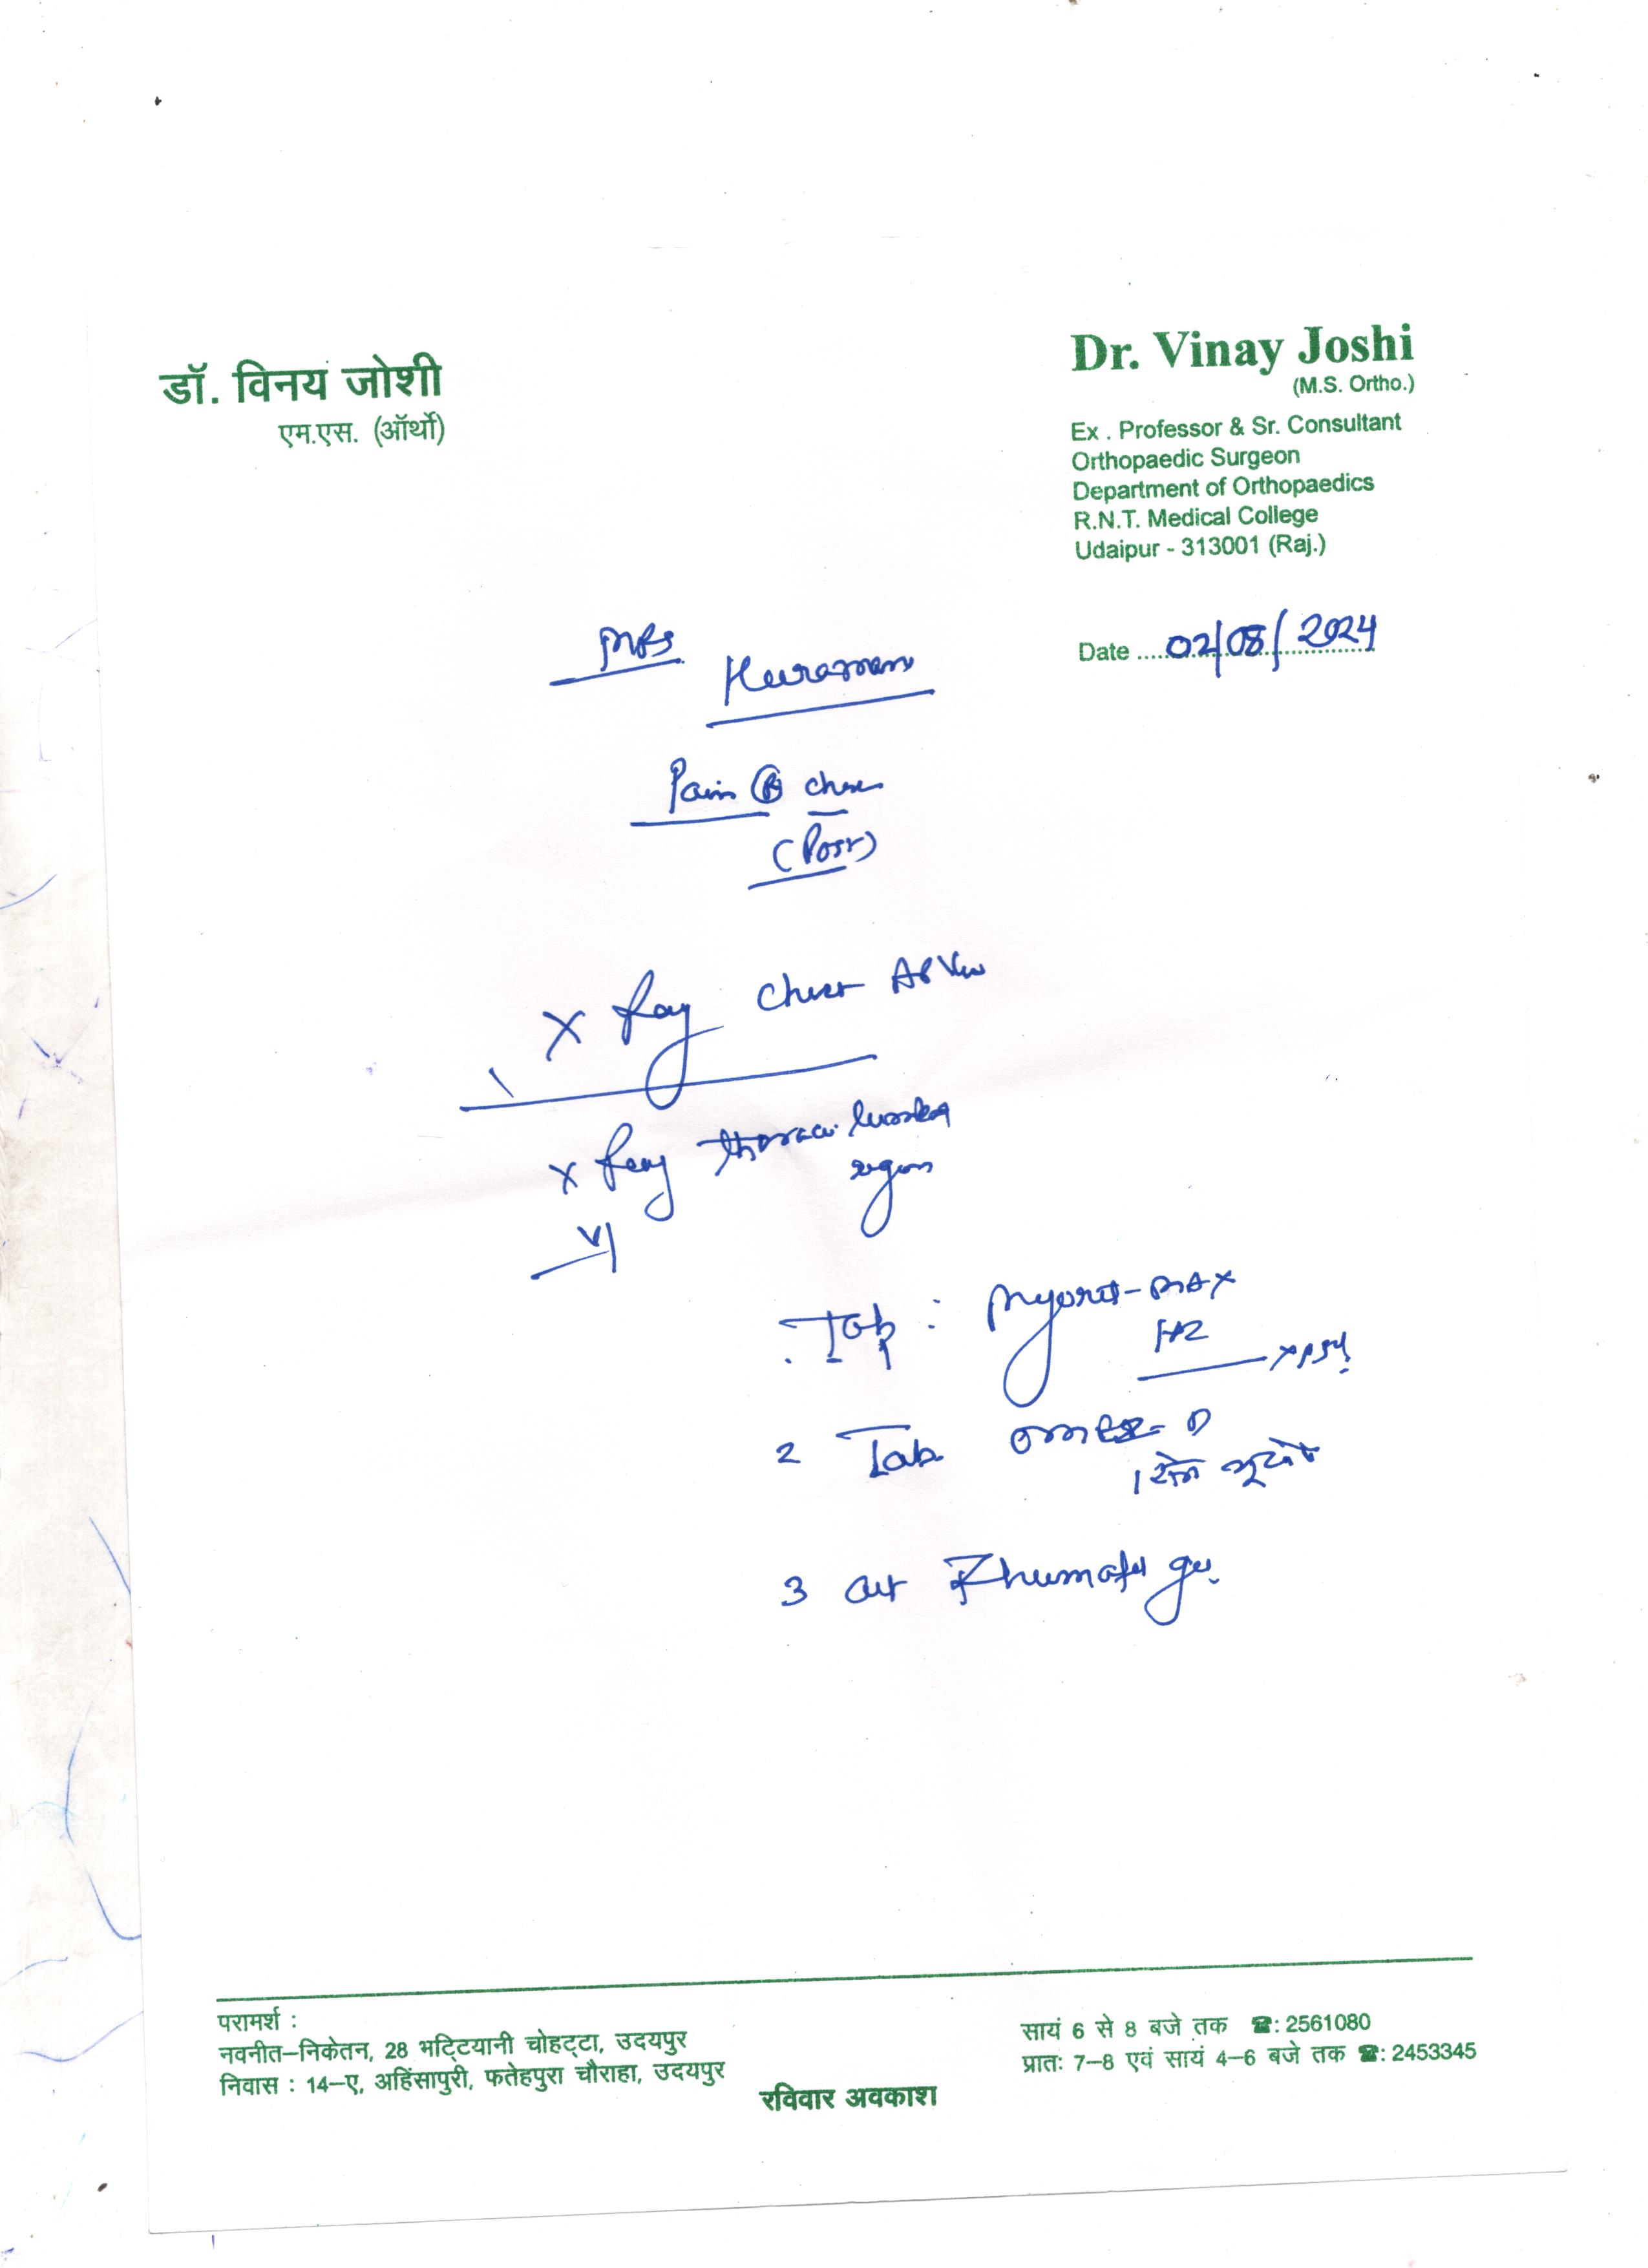 डॉ. विनय जोशी
एम.एस. (ऑर्थो)
Dr. Vinay Joshi
(M.S. Ortho.)
Ex . Professor & Sr. Consultant
Orthopaedic Surgeon
Department of Orthopaedics
R.N.T. Medical College
Udaipur - 313001 (Raj.)
Date .... 02/08/2024
Mrs
Pain Ⓡ
(Post)
X Ray Chest AP View
X Ray
region
Tab :
2 Tab
3
परामर्श :
नवनीत–निकेतन, 28 भटि्टयानी चोहट्टा, उदयपुर
निवास : 14–ए, अहिंसापुरी, फतेहपुरा चौराहा, उदयपुर
सायं 6 से 8 बजे तक ☎: 2561080
प्रातः 7–8 एवं सायं 4–6 बजे तक ☎: 2453345
रविवार अवकाश